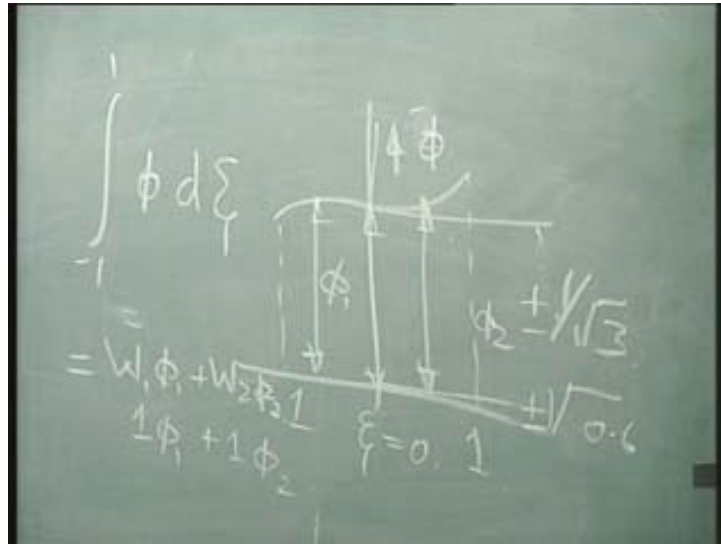 ∫₋₁¹ ϕ dξ
ϕ
ϕ₁
ϕ₂
± 1/√3
=
= W₁ϕ₁ + W₂ϕ₂
1ϕ₁ + 1ϕ₂
1
ξ = 0.
1
± √0.6